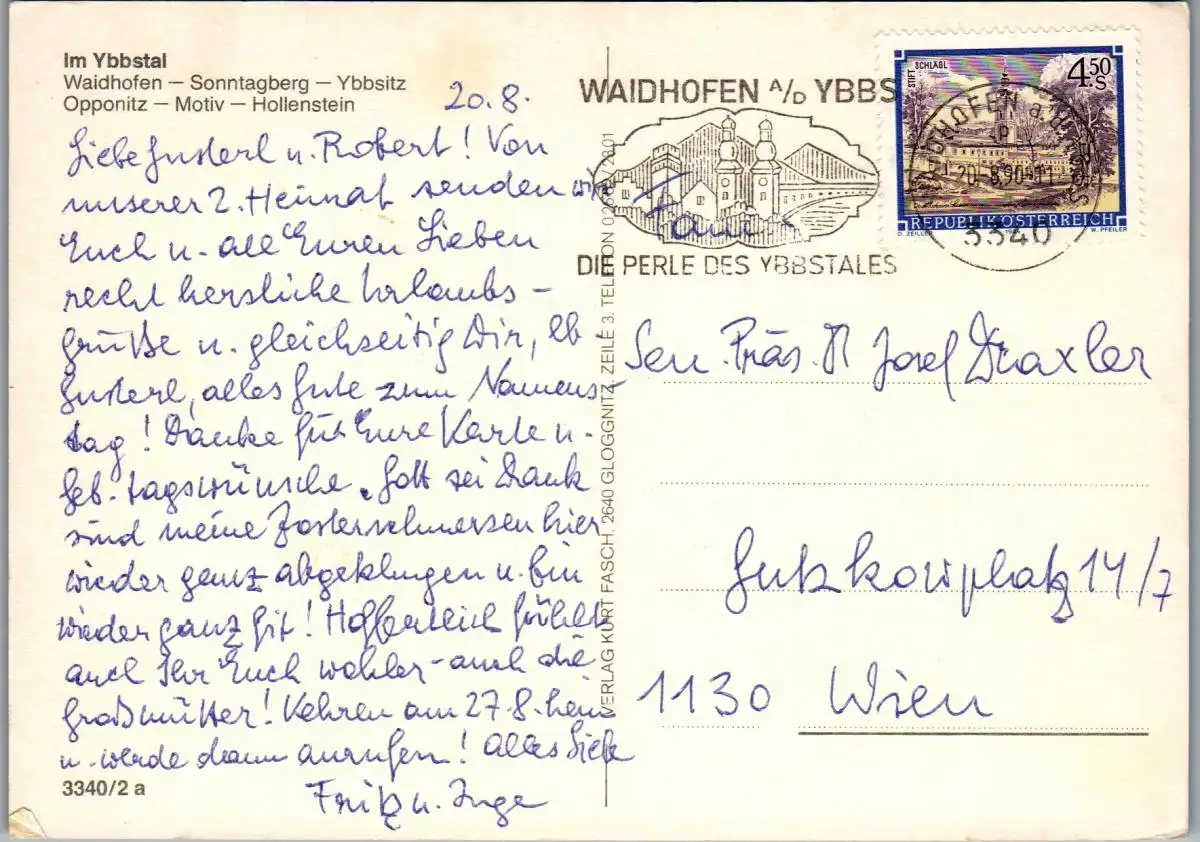 Im Ybbstal
Waidhofen – Sonntagberg – Ybbsitz
Opponitz – Motiv – Hollenstein
20.8.
Liebe Gusterl u. Robert! Von
unserer 2. Heimat senden wir
Euch u. all Euren Lieben
recht herzliche Urlaubs-
grüße u. gleichzeitig Dir, lb
Gusterl, alles Gute zum Namens-
tag! Danke für Eure Karte u.
Geb.tagswünsche. Gott sei Dank
sind meine Zosterschmerzen hier
wieder ganz abgeklungen u. bin
wieder ganz fit! Hoffentlich fühlt
auch Ihr Euch wohler – auch die
Großmütter! Kehren am 27.8. heim
u. werde dann anrufen! Alles Liebe
Fritz u. Inge
3340/2 a
VERLAG KURT FASCH, 2640 GLOGGNITZ, ZEILE 3. TELEFON
WAIDHOFEN A/D YBBS
DIE PERLE DES YBBSTALES
STIFT SCHLÄGL
4.50 S
REPUBLIK ÖSTERREICH
O. ZEILLER
W. PFEILER
20.-8.90-11
3340
Fam.
Sen. Präs. R Josef Draxler
Gutzkowplatz 14/7
1130 Wien